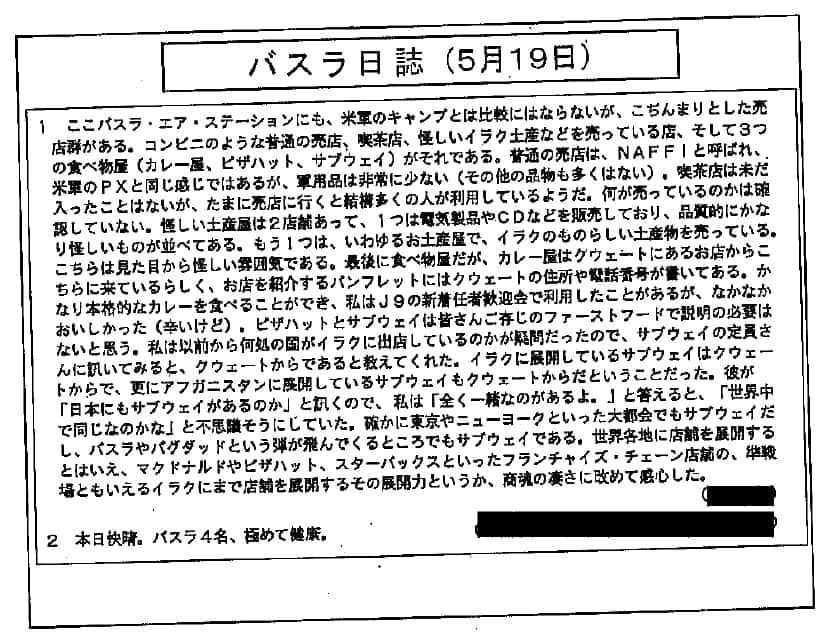 バスラ日誌（5月19日）
1　ここバスラ・エア・ステーションにも、米軍のキャンプとは比較にはならないが、こぢんまりとした売
店群がある。コンビニのような普通の売店、喫茶店、怪しいイラク土産などを売っている店、そして3つ
の食べ物屋（カレー屋、ピザハット、サブウェイ）がそれである。普通の売店は、NAFFIと呼ばれ、
米軍のPXと同じ感じではあるが、軍用品は非常に少ない（その他の品物も多くはない）。喫茶店は未だ
入ったことはないが、たまに売店に行くと結構多くの人が利用しているようだ。何が売っているのかは確
認していない。怪しい土産屋は2店舗あって、1つは電気製品やCDなどを販売しており、品質的にかな
り怪しいものが並べてある。もう1つは、いわゆるお土産屋で、イラクのものらしい土産物を売っている。
こちらは見た目から怪しい雰囲気である。最後に食べ物屋だが、カレー屋はクウェートにあるお店からこ
ちらに来ているらしく、お店を紹介するパンフレットにはクウェートの住所や電話番号が書いてある。か
なり本格的なカレーを食べることができ、私はJ9の新着任者歓迎会で利用したことがあるが、なかなか
おいしかった（辛いけど）。ピザハットとサブウェイは皆さんご存じのファーストフードで説明の必要は
ないと思う。私は以前から何処の国がイラクに出店しているのかが疑問だったので、サブウェイの定員さ
んに訊いてみると、クウェートからであると教えてくれた。イラクに展開しているサブウェイはクウェー
トからで、更にアフガニスタンに展開しているサブウェイもクウェートからだということだった。彼が
「日本にもサブウェイがあるのか」と訊くので、私は「全く一緒なのがあるよ。」と答えると、「世界中
で同じなのかな」と不思議そうにしていた。確かに東京やニューヨークといった大都会でもサブウェイだ
し、バスラやバグダッドという弾が飛んでくるところでもサブウェイである。世界各地に店舗を展開する
とはいえ、マクドナルドやピザハット、スターバックスといったフランチャイズ・チェーン店舗の、準戦
場ともいえるイラクにまで店舗を展開するその展開力というか、商魂の凄さに改めて感心した。
2　本日快晴。バスラ4名、極めて健康。